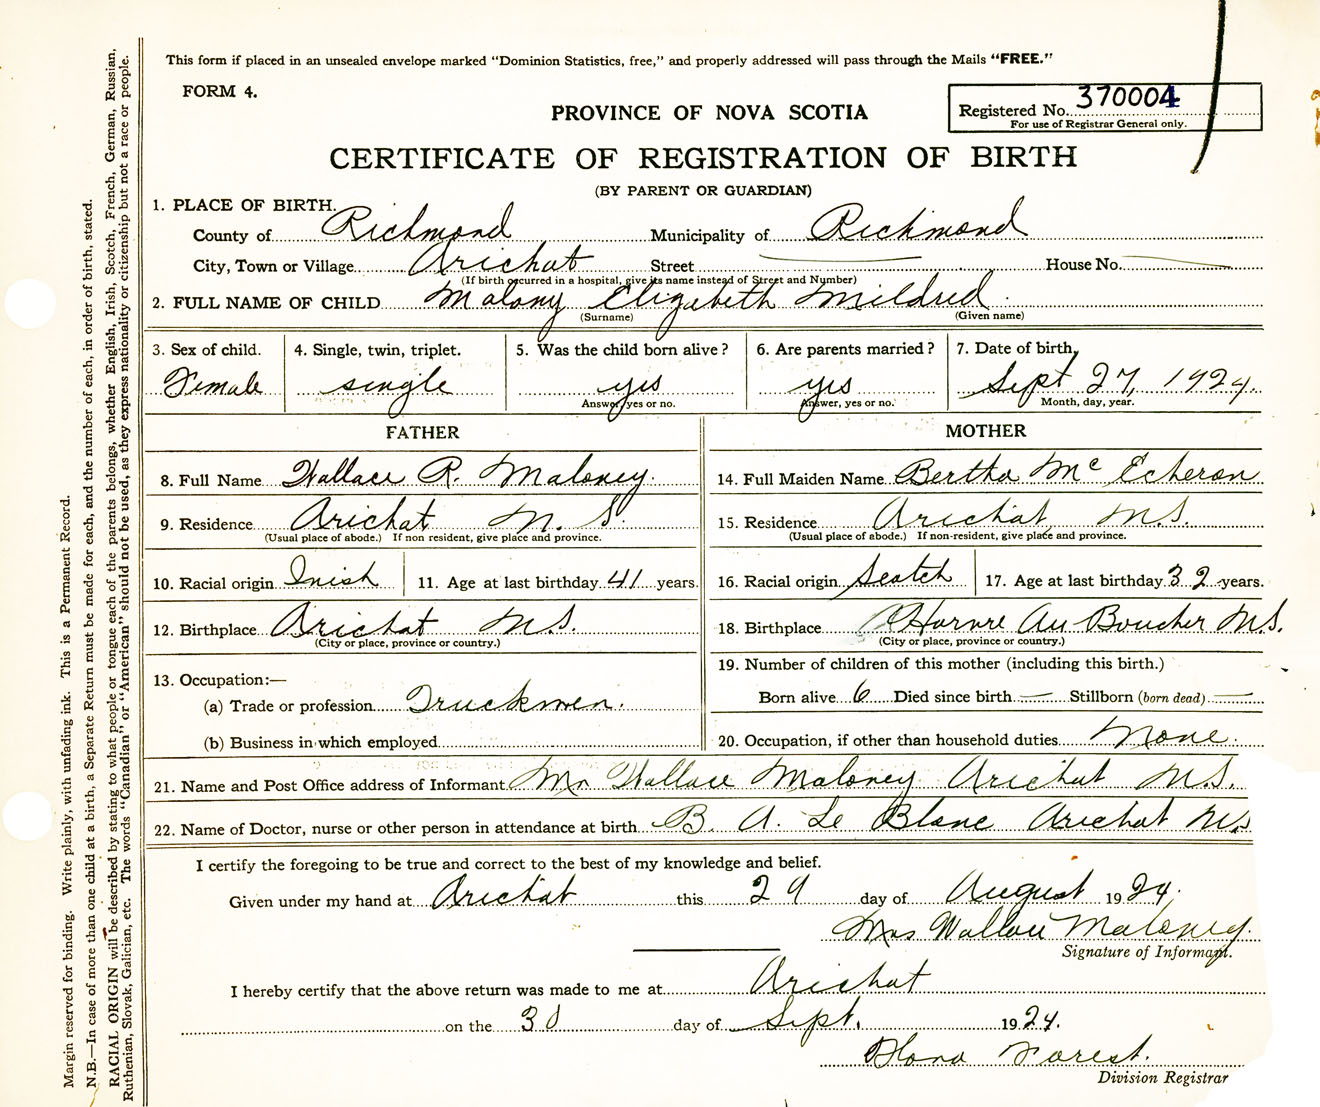 This form if placed in an unsealed envelope marked "Dominion Statistics, free," and properly addressed will pass through the Mails "FREE."
FORM 4.
PROVINCE OF NOVA SCOTIA
Registered No. 370004
For use of Registrar General only.
CERTIFICATE OF REGISTRATION OF BIRTH
(BY PARENT OR GUARDIAN)
1. PLACE OF BIRTH.
County of Richmond Municipality of Richmond
City, Town or Village Arichat Street House No.
(If birth occurred in a hospital, give its name instead of Street and Number)
2. FULL NAME OF CHILD Malony Elizabeth Mildred
(Surname) (Given name)
3. Sex of child. 4. Single, twin, triplet. 5. Was the child born alive? 6. Are parents married? 7. Date of birth,
Female single yes yes Sept 27, 1924.
Answer, yes or no. Answer, yes or no. Month, day, year.
FATHER MOTHER
8. Full Name Wallace R. Maloney. 14. Full Maiden Name Bertha Mc Echeron
9. Residence Arichat N. S. 15. Residence Arichat, N.S.
(Usual place of abode.) If non resident, give place and province. (Usual place of abode.) If non-resident, give place and province.
10. Racial origin Irish 11. Age at last birthday 41 years. 16. Racial origin Scotch 17. Age at last birthday 32 years.
12. Birthplace Arichat N.S. 18. Birthplace Harvre Au Boucher N.S.
(City or place, province or country.) (City or place, province or country.)
19. Number of children of this mother (including this birth.)
13. Occupation:—
Born alive 6 Died since birth — Stillborn (born dead) —
(a) Trade or profession Truckmen.
(b) Business in which employed 20. Occupation, if other than household duties None.
21. Name and Post Office address of Informant Mr Wallace Maloney Arichat N.S.
22. Name of Doctor, nurse or other person in attendance at birth B. A. Le Blanc Arichat N.S
I certify the foregoing to be true and correct to the best of my knowledge and belief.
Given under my hand at Arichat this 29 day of August 1924.
Mrs Wallace Maloney.
Signature of Informant.
I hereby certify that the above return was made to me at Arichat
on the 30 day of Sept. 1924.
Forest.
Division Registrar
Margin reserved for binding. Write plainly, with unfading ink. This is a Permanent Record.
N.B.—In case of more than one child at a birth, a Separate Return must be made for each, and the number of each, in order of birth, stated.
RACIAL ORIGIN will be described by stating to what people or tongue each of the parents belongs, whether English, Irish, Scotch, French, German, Russian,
Ruthenian, Slovak, Galician, etc. The words "Canadian" or "American" should not be used, as they express nationality or citizenship but not a race or people.